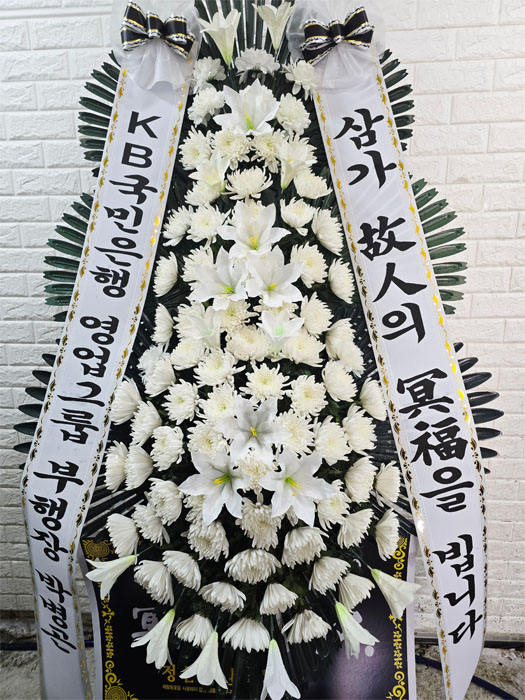 KB국민은행 영업그룹 부행장 박병곤
삼가 故人의 冥福을 빕니다
冥